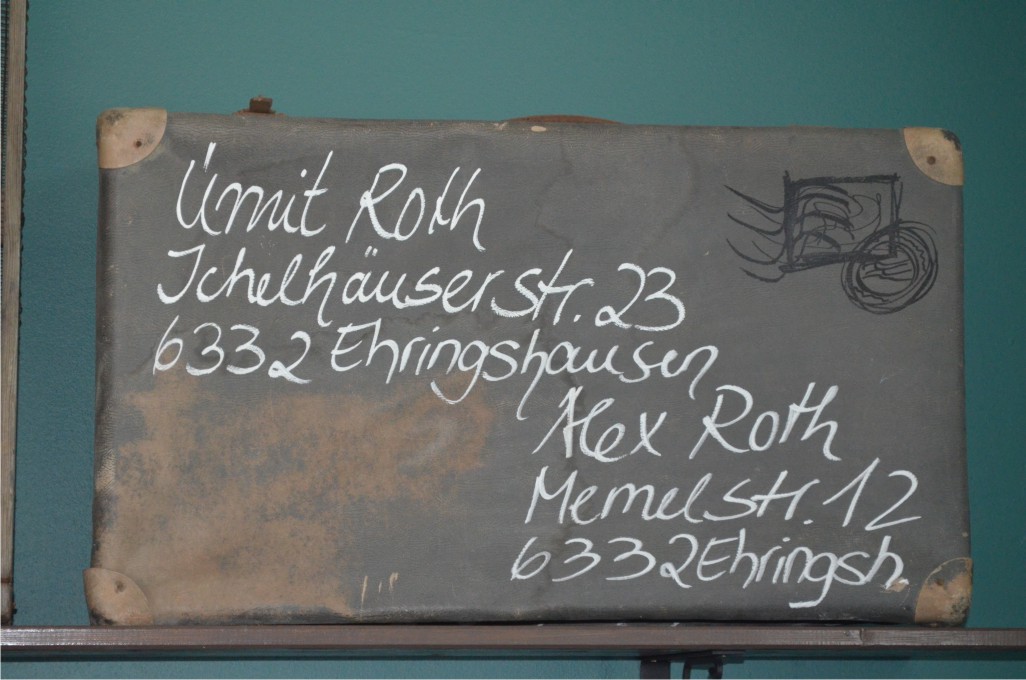 Ümit Roth
Ichelhäuserstr. 23
6332 Ehringshausen
Alex Roth
Memelstr. 12
6332 Ehringsh.